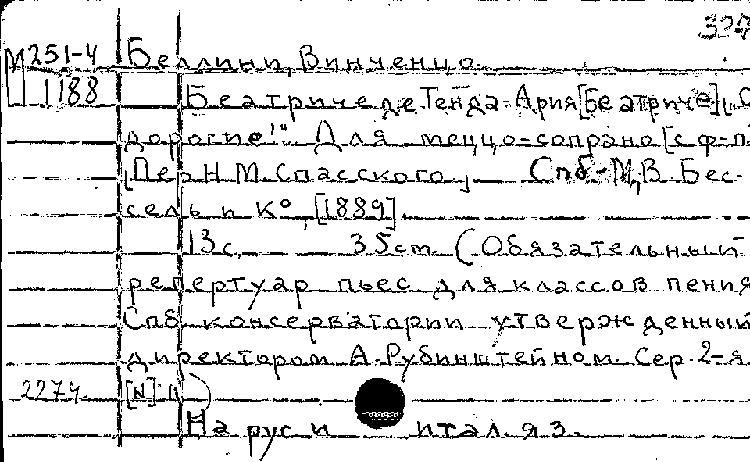 327
М 251-4 Беллини, Винченцо.
1188 Беатриче де Тенда. Ария [Беатриче] „О
дорогие!" Для меццо-сопрано [с ф-п.
[Пер. Н.М. Спасского] Спб.-М, В. Бес-
сель и К° [1889]
13 с. 35 cm (Обязательный
репертуар пьес для классов пения
Спб консерватории утвержденный
директором А. Рубинштейном. Сер. 2-я
2274. [N] 11)
На рус и итал яз.